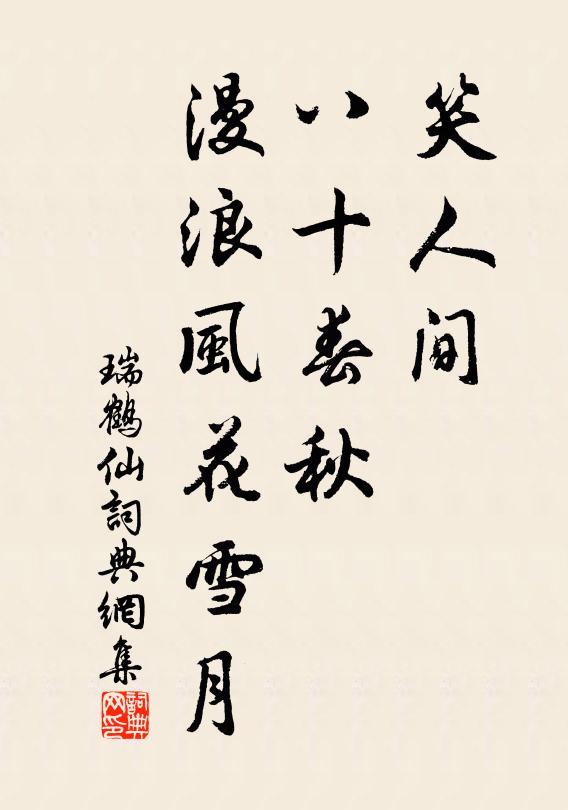 笑人间
八十春秋
漫浪風花雪月
瑞鶴仙詞典網集
詞典网印